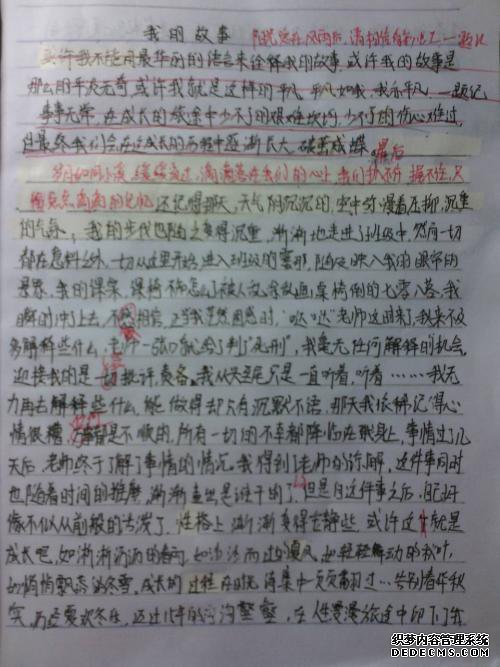 我的故事 阳光总在风雨后,请相信 一题记
或许我不能用最华丽的语言来诠释我的故事,或许我的故事是
那么的平庸无奇,或许我就是这样的平凡,平凡如我,我亦平凡 一题记
事事无常,在成长的旅途中少不了的艰难坎坷,少不了的伤心难过,
但最终我们会在这成长的历程中逐渐长大,破茧成蝶。最后
岁月如同小溪,缓缓流过,滴滴落在我们的心上,我们
点点滴滴的记忆 还记得那天,天气阴沉沉的,空中弥漫着压抑、沉重
的气氛,我的步伐也随之变得沉重,渐渐地走进了班级中,然而一切
都在意料之外,一切从这里开始,进入班级的霎那,随及映入我的眼帘的
景象,我的课桌、课椅不知怎么了被人 桌椅倒的七零八落,我
瞬时冲上去,不敢相信,正当我茫然困惑时,“哒哒”老师这时来了,我来不及
多解释些什么,老师一张口就给了判了“死刑”,我毫无任何解释的机会,
迎接我的是一切批评、责备,我从头至尾只是一直听着,听着……我无
力再去解释些什么,能做得却只有沉默不语,那天我依稀记得心
情很糟, 是不顺的,所有一切的不幸都降临在我身上,事情过了几
天后,老师终于了解了事情的情况,我得到了老师的谅解,这件事同时
也随着时间的推磨,渐渐 但是自这件事之后,自己好
像不似从前般的活泼了,性格上渐渐变得安静些,或许这就是
成长吧,如淅淅沥沥的春雨,如 而过的夏风,如轻轻舞动的秋叶,
如悄悄飘落的冬雪,成长的过程在时光 集中一页页翻过…告别春华秋
实,历经夏炎冬寒,迈过几年的沟沟壑壑,在人生漫漫旅途中印下了我